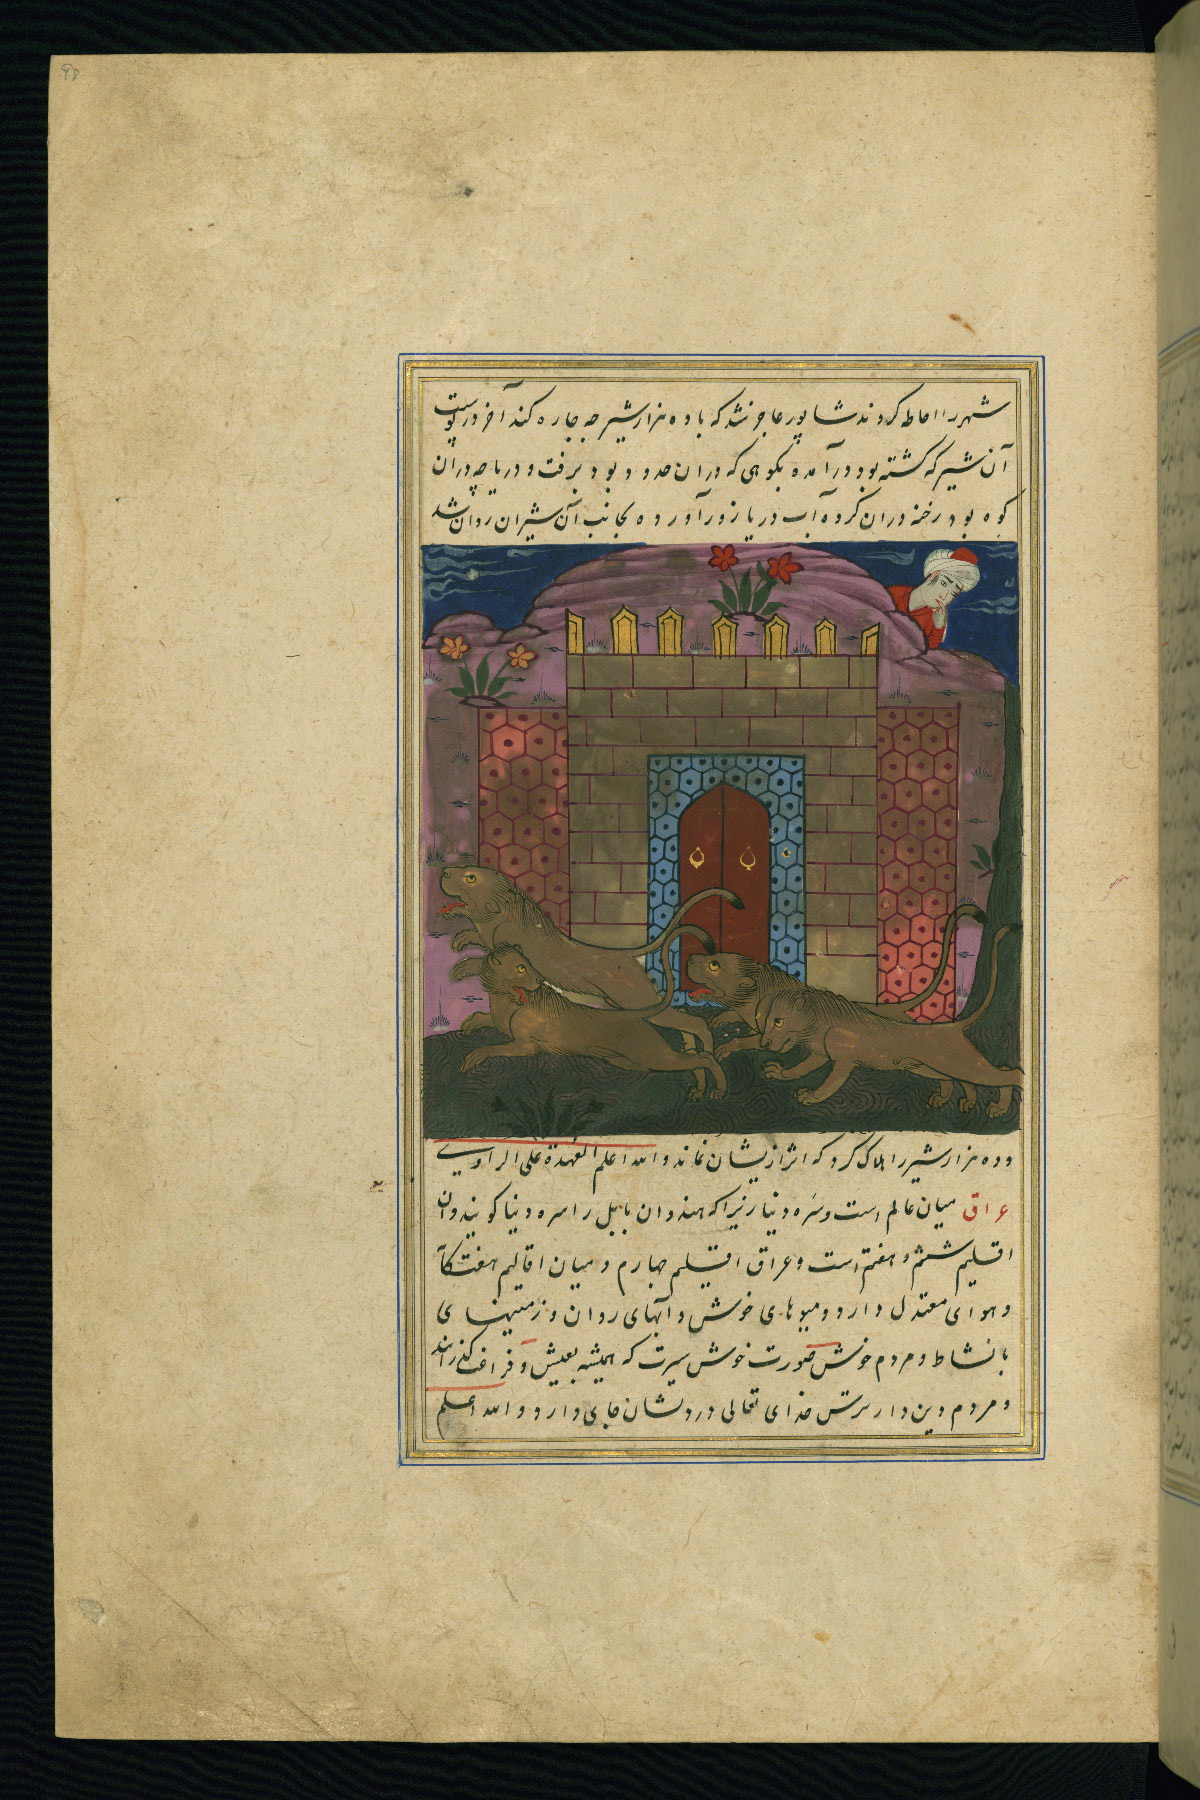 شهر را احاطه کردند شاپور عاجز شد که با ده هزار شیر چه چاره کند آخر در پوست
آن شیر که کشته بود در آمده بکوهی که در ان حدود بود برفت و دریاچه در ان
کوه بود رخنه در ان کرده آب دریا زور آورده بجانب آن شیران روان شد
و ده هزار شیر را هلاک کرد که اثر ازیشان نماند والله اعلم العهدة علی الراوی
عراق میان عالم است و سره دنیا زیرا که هندوان بابل را سره دنیا کویند و ان
اقلیم ششم و هفتم است و عراق اقلیم چهارم و میان اقالیم هفتکانه
و هوای معتدل دارد و میوهای خوش و آبهای روان و زمینهای
با نشاط و مردم خوش صورت خوش سیرت که همیشه بعیش و فراغت کذرانند
و مردم دین دار ترس خدای تعالی در دلشان جای دارد والله اعلم